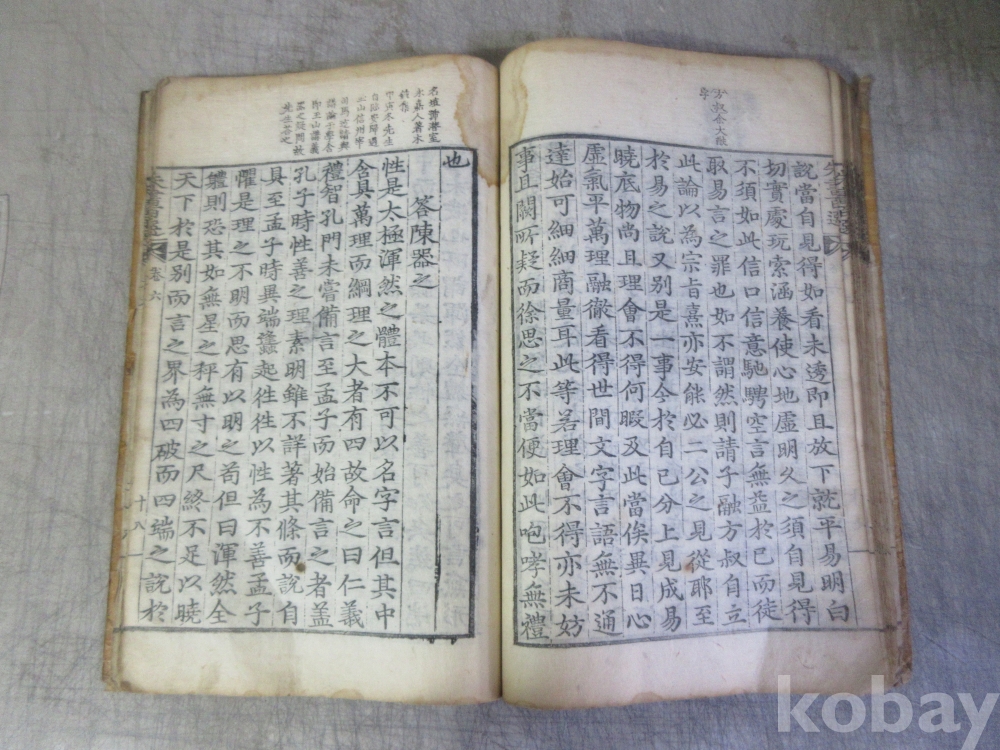 方叔合大猷
字
說當自見得如看未透即且放下就平易明白
切實處玩索涵養使心地虛明久之須自見得
不須如此信口信意馳騁空言無益於已而徒
取易言之罪也如不謂然則請子融方叔自立
此論以為宗旨熹亦安能必二公之見從耶至
於易之說又別是一事今於自已分上見成易
曉底物尚且理會不得何暇及此當俟異日心
虛氣平萬理融徹看得世間文字言語無不通
達始可細細商量耳此等若理會不得亦未妨
事且闕所疑而徐思之不當便如此咆哮無禮
名埴號潛室
永嘉人著木
鍾集
也
答陳器之
性是太極渾然之體本不可以名字言但其中
含具萬理而綱理之大者有四故命之曰仁義
禮智孔門未嘗備言至孟子而始備言之者盖
孔子時性善之理素明雖不詳著其條而說自
具至孟子時異端蠭起徃徃以性為不善孟子
懼是理之不明而思有以明之苟但曰渾然全
軆則恐其如無星之秤無寸之尺終不足以曉
天下於是別而言之界為四破而四端之說於
朱書百選
卷六
十八
kobay